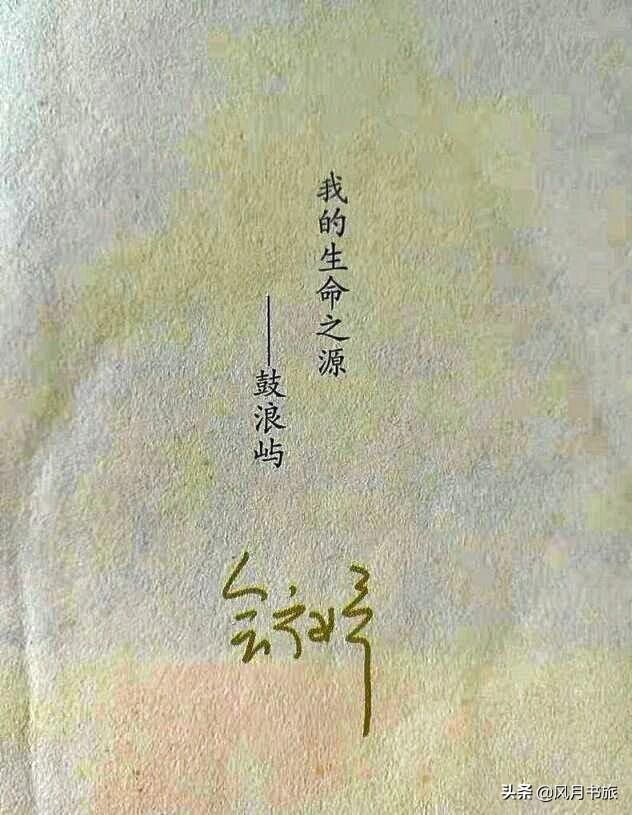 我的生命之源
——鼓浪屿
舒婷
头条 @风月书旅